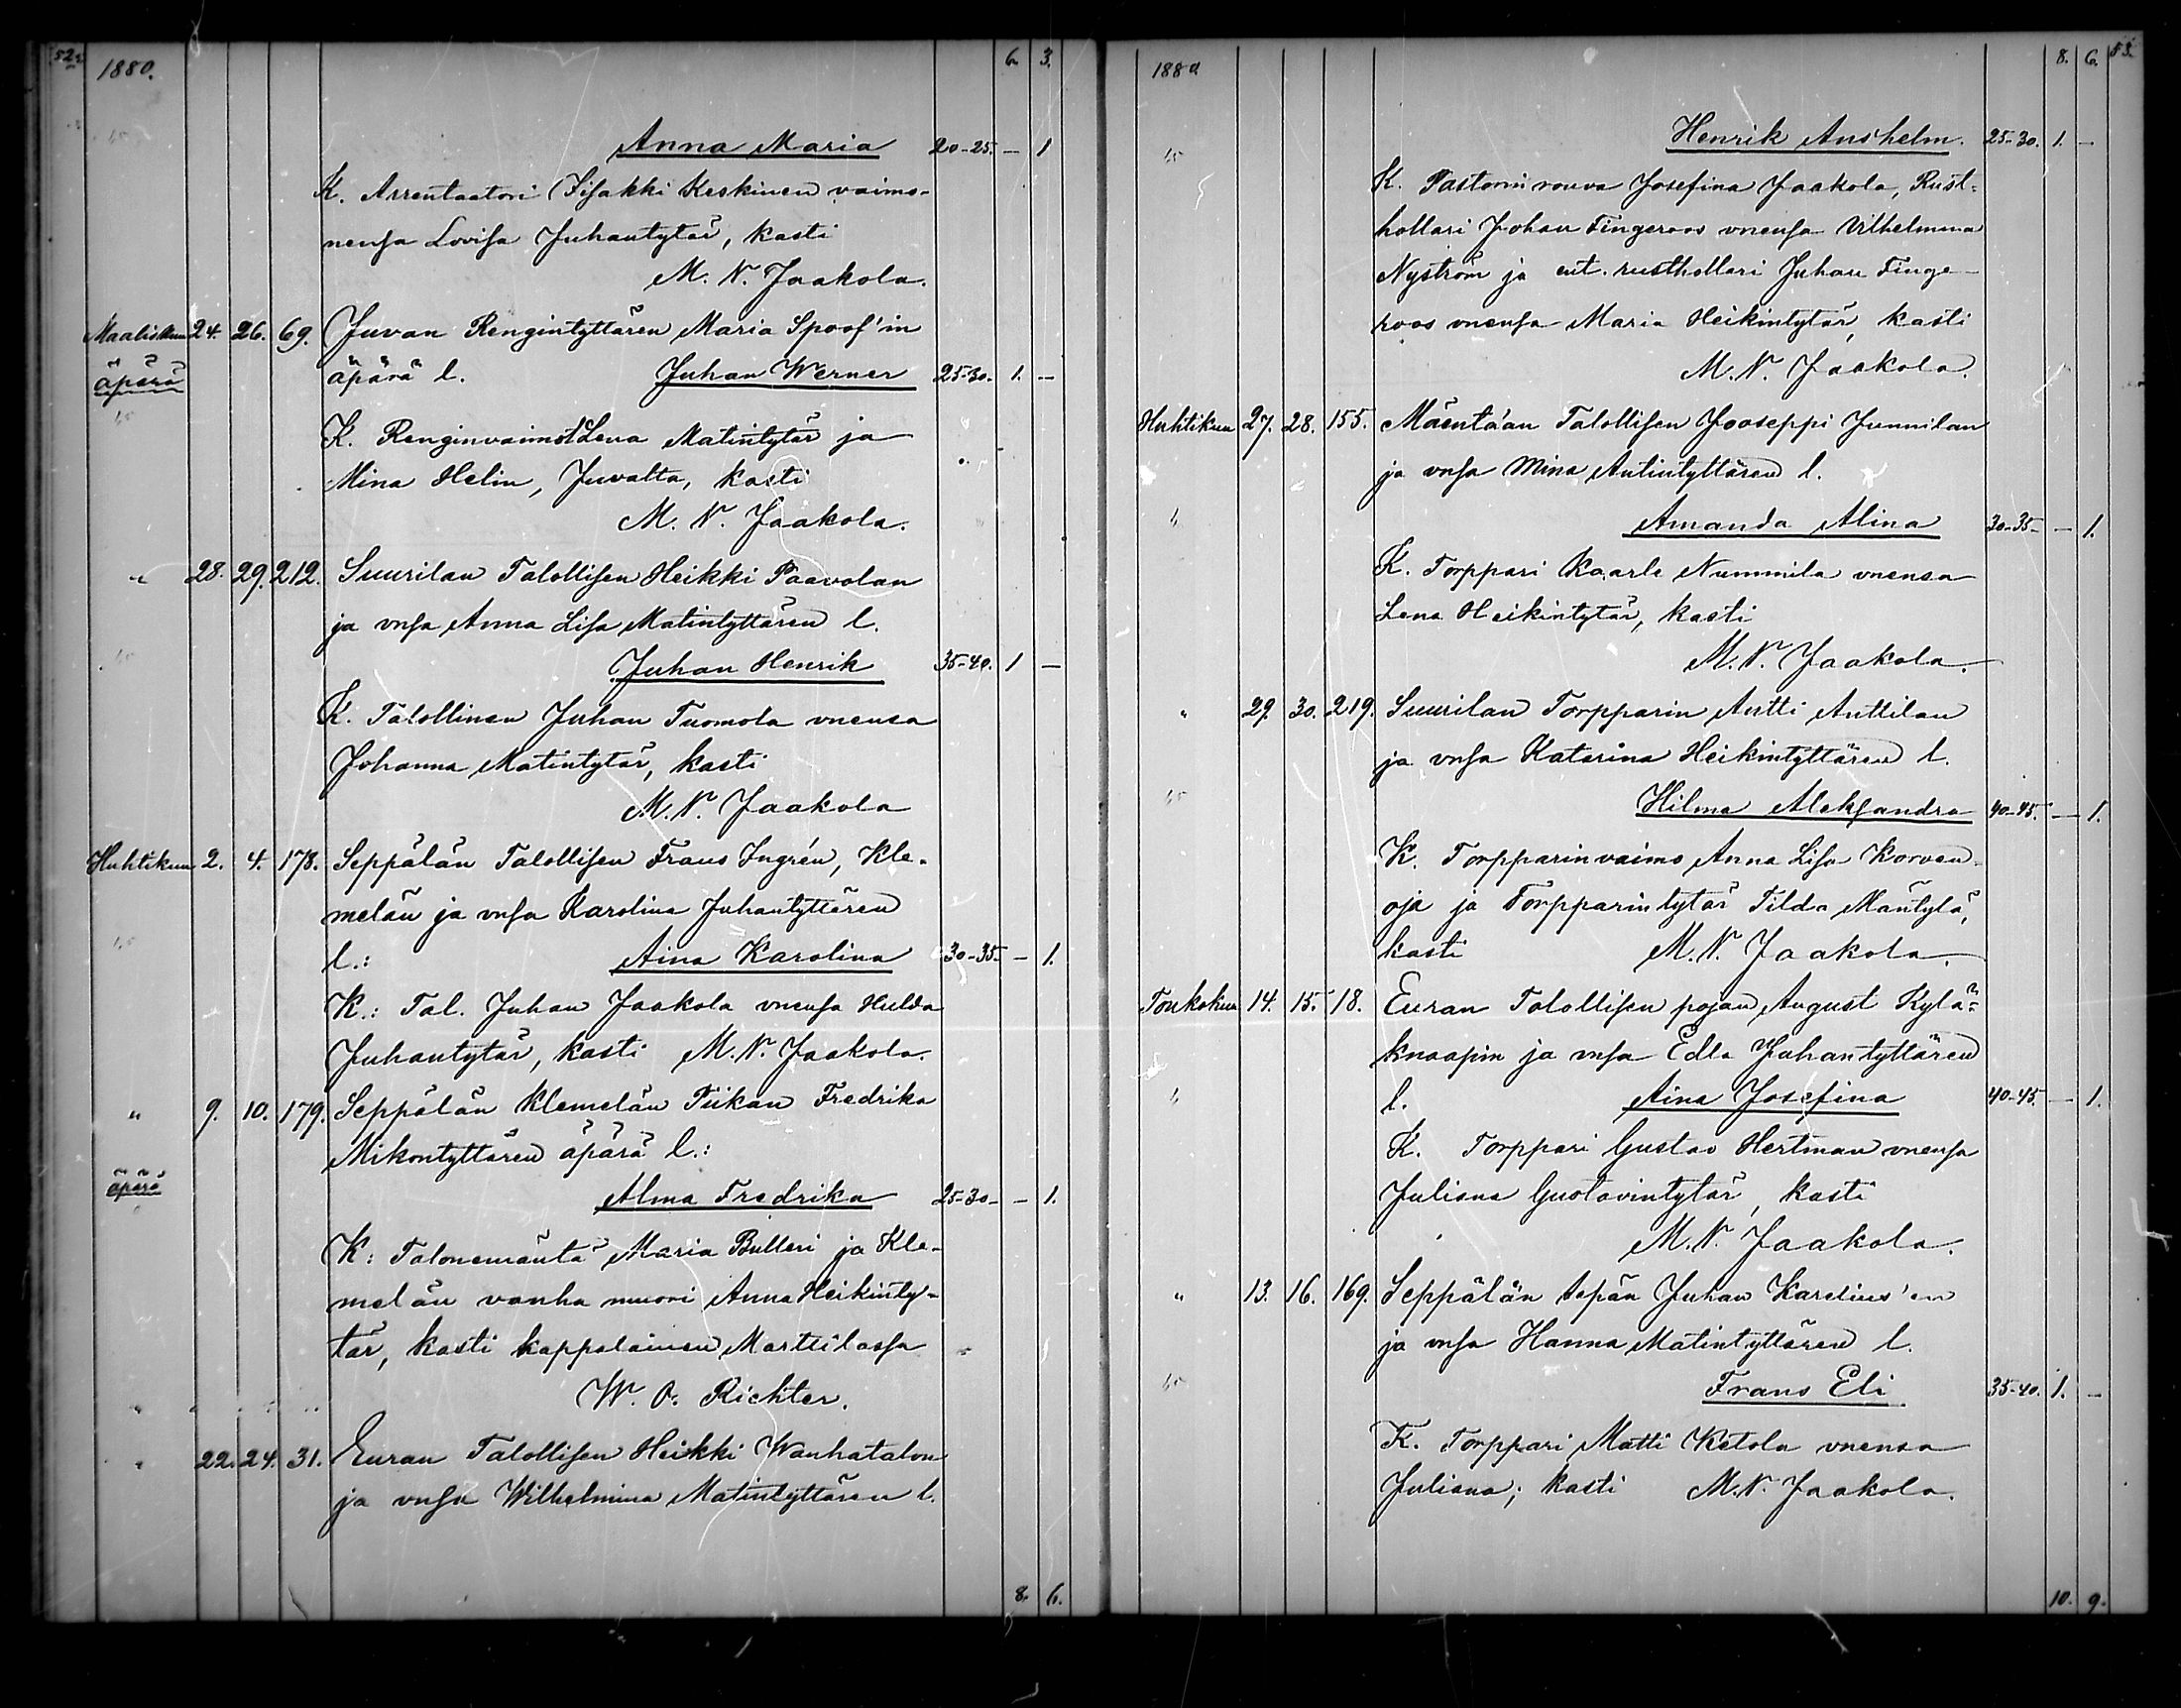 52. 1880. 6. 3.
Anna Maria 20-25. — 1
K. Arrentaatori Iisakki Keskinen vaimo-
nensa Lovisa Juhantytär, kasti
M. N. Jaakola.
Maaliskuu 24. 26. 69. Juvan Rengintyttären Maria Spoof'in
äpärä äpärä l. Juhan Werner 25-30. 1. —
K. Renginvaimot Lena Matintytär ja
Mina Helin, Juvalta, kasti
M. N. Jaakola.
" 28. 29. 212. Suurilan Talollisen Heikki Paavolan
ja vnsa Anna Lisa Matintyttären l.
Juhan Henrik 35-40. 1 —
K. Talollinen Juhan Tuomola vnensa
Johanna Matintytär, kasti
M. N. Jaakola
Huhtikuu 2. 4. 178. Seppälän Talollisen Frans Ingrén, Kle-
melän ja vnsa Karolina Juhantyttären
l.: Aina Karolina 30-35- — 1.
K.: Tal. Juhan Jaakola vnensa Hulda
Juhantytär, kasti M. N. Jaakola.
" 9. 10. 179. Seppälän Klemelän Piikan Fredrika
Mikontyttären äpärä l.:
äpärä Alma Fredrika 25-30- — 1.
K: Talonemäntä Maria Bulleri ja Kle-
melän vanha muori Anna Heikinty-
tär, kasti kappalainen Marttilassa
W. O. Richter.
" 22. 24. 31. Euran Talollisen Heikki Wanhatalon
ja vnsa Wilhelmina Matintyttären l.
8. 6.
1880 8. 6. 53.
Henrik Anshelm. 25-30. 1. —
K. Pastorin rouva Josefina Jaakola, Rust-
hollari Johan Fingeroos vnensa Vilhelmina
Nyström ja ent. rusthollari Juhan Finge-
roos vnensa Maria Heikintytär, kasti
M. N. Jaakola.
Huhtikuu 27. 28. 155. Mäentään Talollisen Jooseppi Junnilan
ja vnsa Mina Antintyttären l.
Amanda Alina 30-35- — 1.
K. Torppari Kaarle Nummila vnensa
Lena Heikintytär, kasti
M. N. Jaakola.
" 29. 30. 219. Suurilan Torpparin Antti Anttilan
ja vnsa Katarina Heikintyttären l.
Hilma Aleksandra 40-45. — 1.
K. Torpparinvaimo Anna Lisa Korven-
oja ja Torpparintytär Tilda Mäntylä,
kasti M. N. Jaakola.
Toukokuu 14. 15. 18. Euran Talollisen pojan August Kylä-
knaapin ja vnsa Edla Juhantyttären
l. Aina Josefina 40-45. — 1.
K. Torppari Gustav Hertman vnensa
Juliana Gustavintytär, kasti
M. N. Jaakola.
" 13. 16. 169. Seppälän sepän Juhan Karelius'en
ja vnsa Hanna Matintyttären l.
Frans Eli 35-40. 1. —
K. Torppari Matti Ketola vnensa
Juliana; kasti M. N. Jaakola.
10. 9.